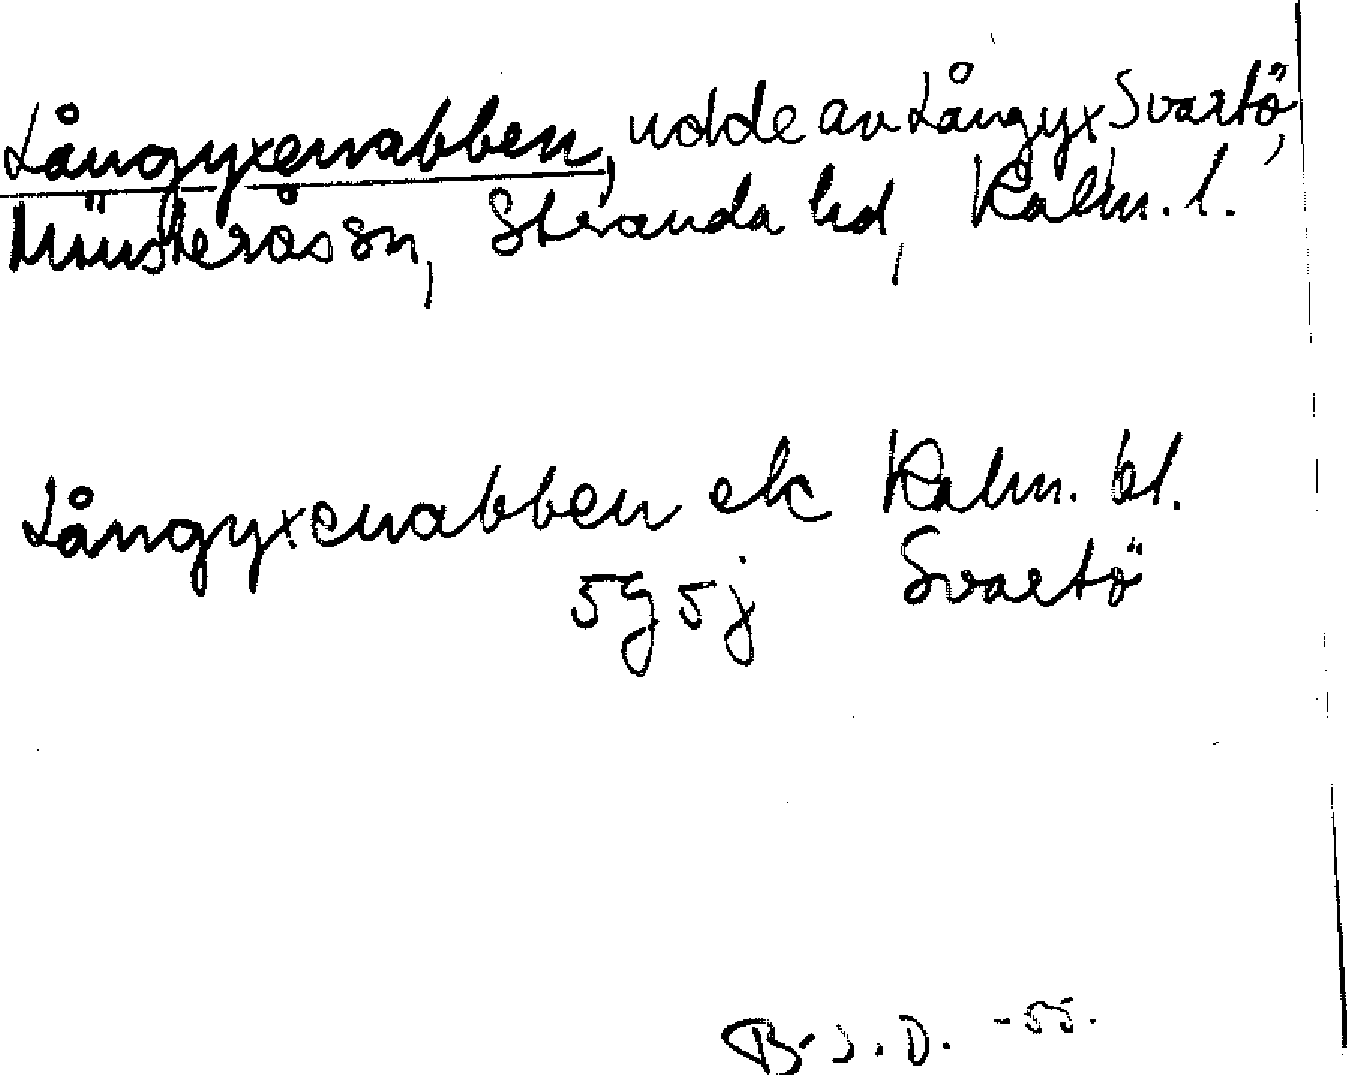 Långyxenabben, udde av Långyx, Svartö,
Mönsterås sn, Stranda hd, Kalm. l.
Långyxenabben ek Kalm. bl.
5g5j Svartö
B-J.D. -55.